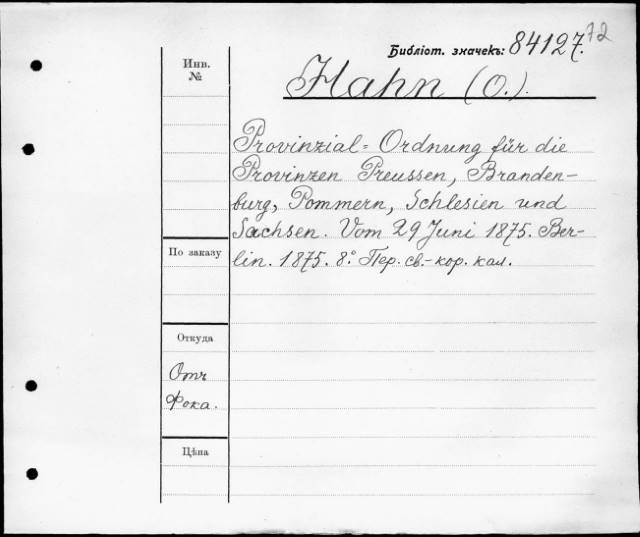 72
Библіот. значекъ: 84127.
Инв.
№
Hahn (O.).
Provinzial-Ordnung für die
Provinzen Preussen, Branden-
burg, Pommern, Schlesien und
Sachsen. Vom 29 Juni 1875. Ber-
lin. 1875. 8.° Пер. св.-кор. кал.
По заказу
Откуда
Отъ
Фока.
Цѣна